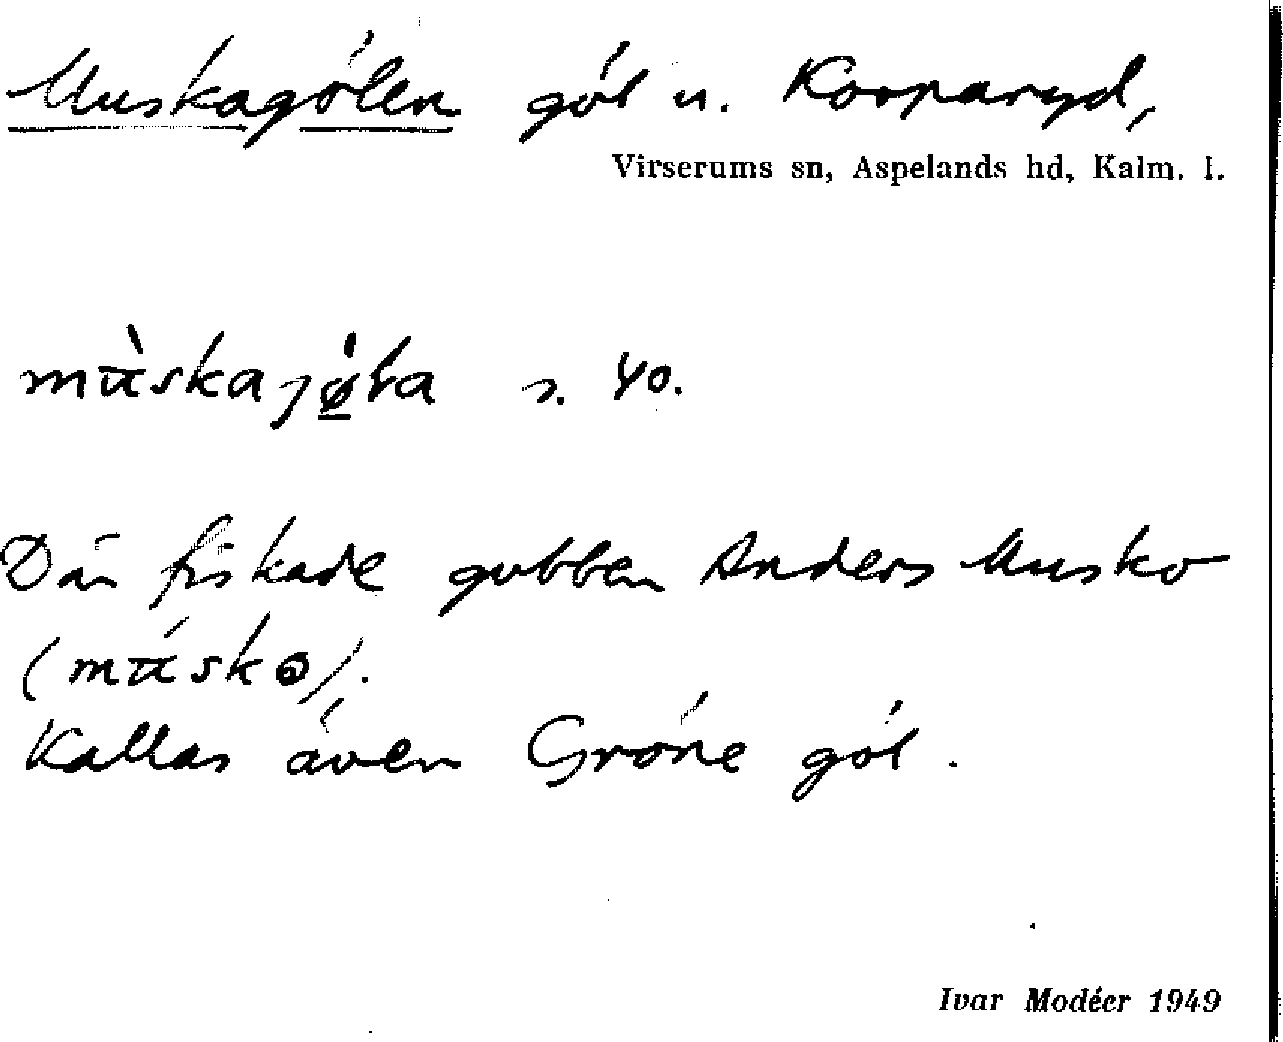 Muskagölen göl u. Korparyd,
Virserums sn, Aspelands hd, Kalm. l.
s. 40.
Där fiskade gubben Anders Musko
Kallas även Gröne göl.
Ivar Modéer 1949